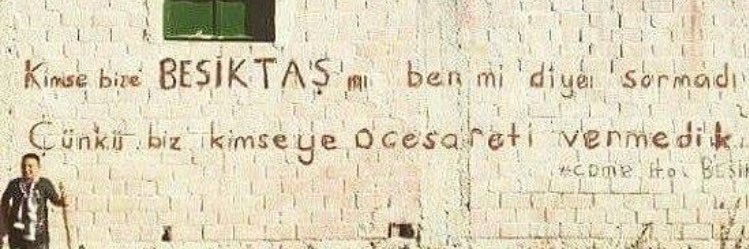 Kimse bize BEŞİKTAŞ'mı ben mi diyei sormadı
Çünkü biz kimseye o cesareti venmedik
BEŞİK